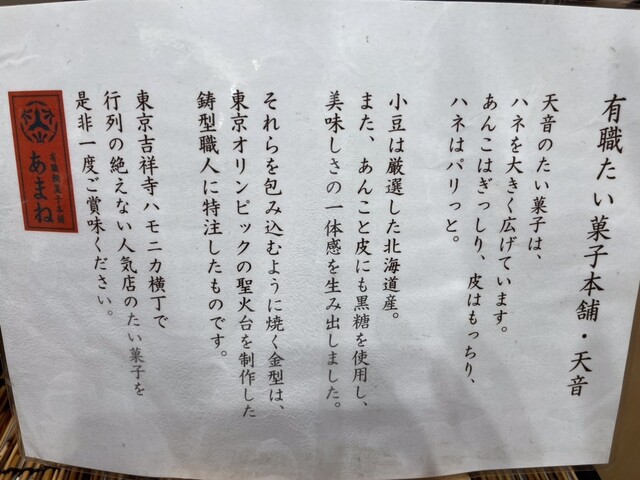 有職たい菓子本舗・天音
天音のたい菓子は、
ハネを大きく広げています。
あんこはぎっしり、皮はもっちり、
ハネはパリっと。
小豆は厳選した北海道産。
また、あんこと皮にも黒糖を使用し、
美味しさの一体感を生み出しました。
それらを包み込むように焼く金型は、
東京オリンピックの聖火台を制作した
鋳型職人に特注したものです。
東京吉祥寺ハモニカ横丁で
行列の絶えない人気店のたい菓子を
是非一度ご賞味ください。
あまね